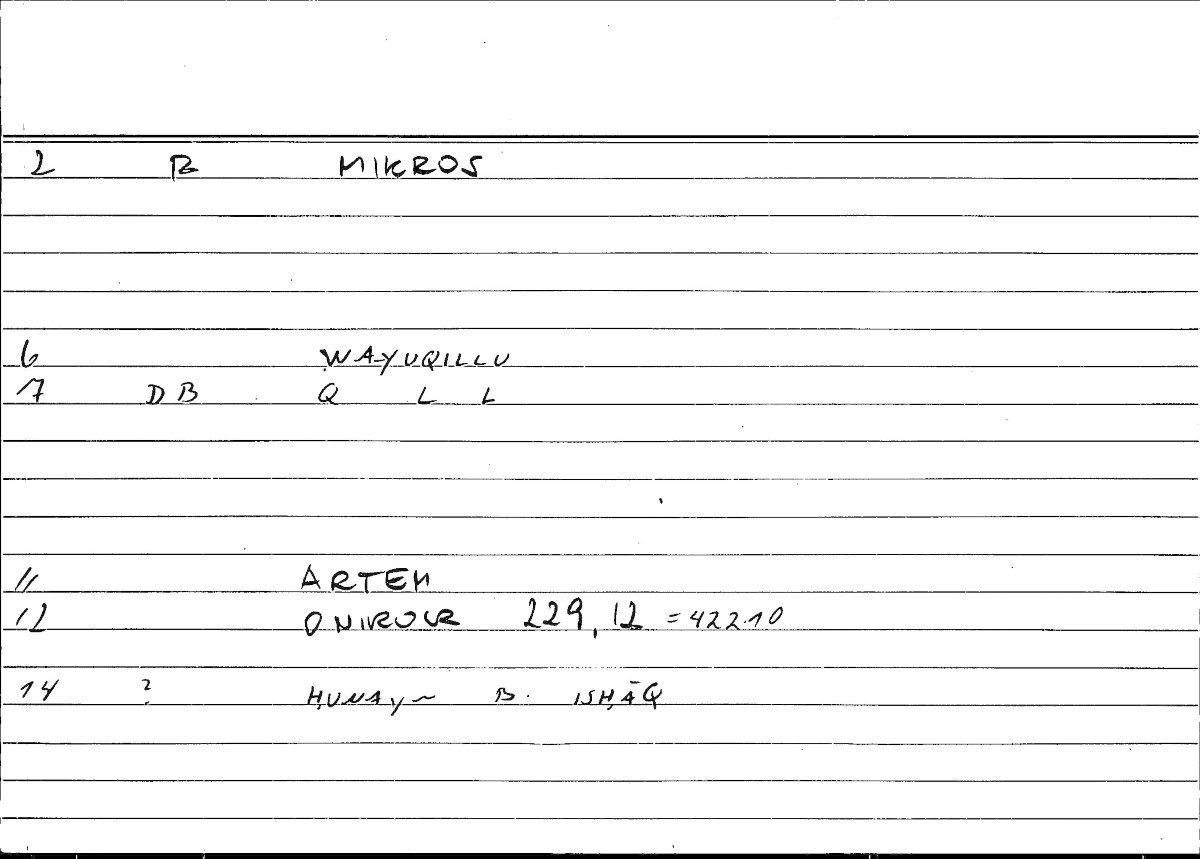 2 B MIKROS
6 WAYUQILLU
7 DB Q L L
11 ARTEM
12 ONIROCR 229,12 = 422.10
14 ? ḤUNAYN B. ISḤĀQ